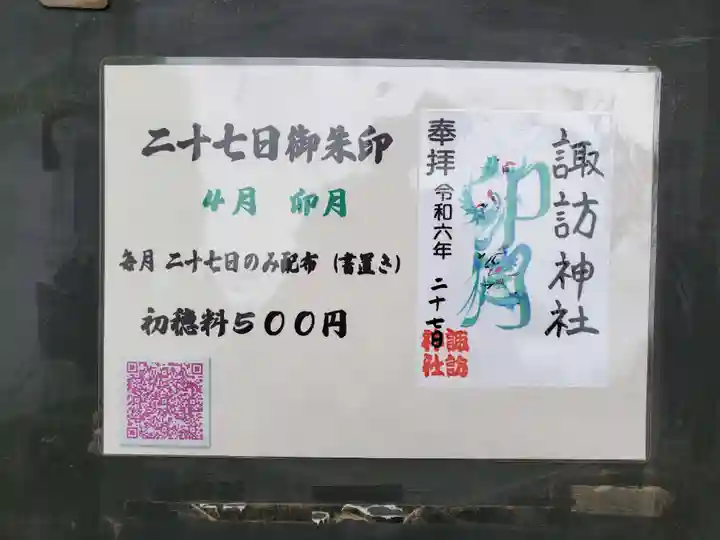 二十七日御朱印
4月 卯月
毎月 二十七日のみ配布（書置き）
初穂料５００円
諏訪神社
卯月
奉拝 令和六年 二十七日
諏訪神社